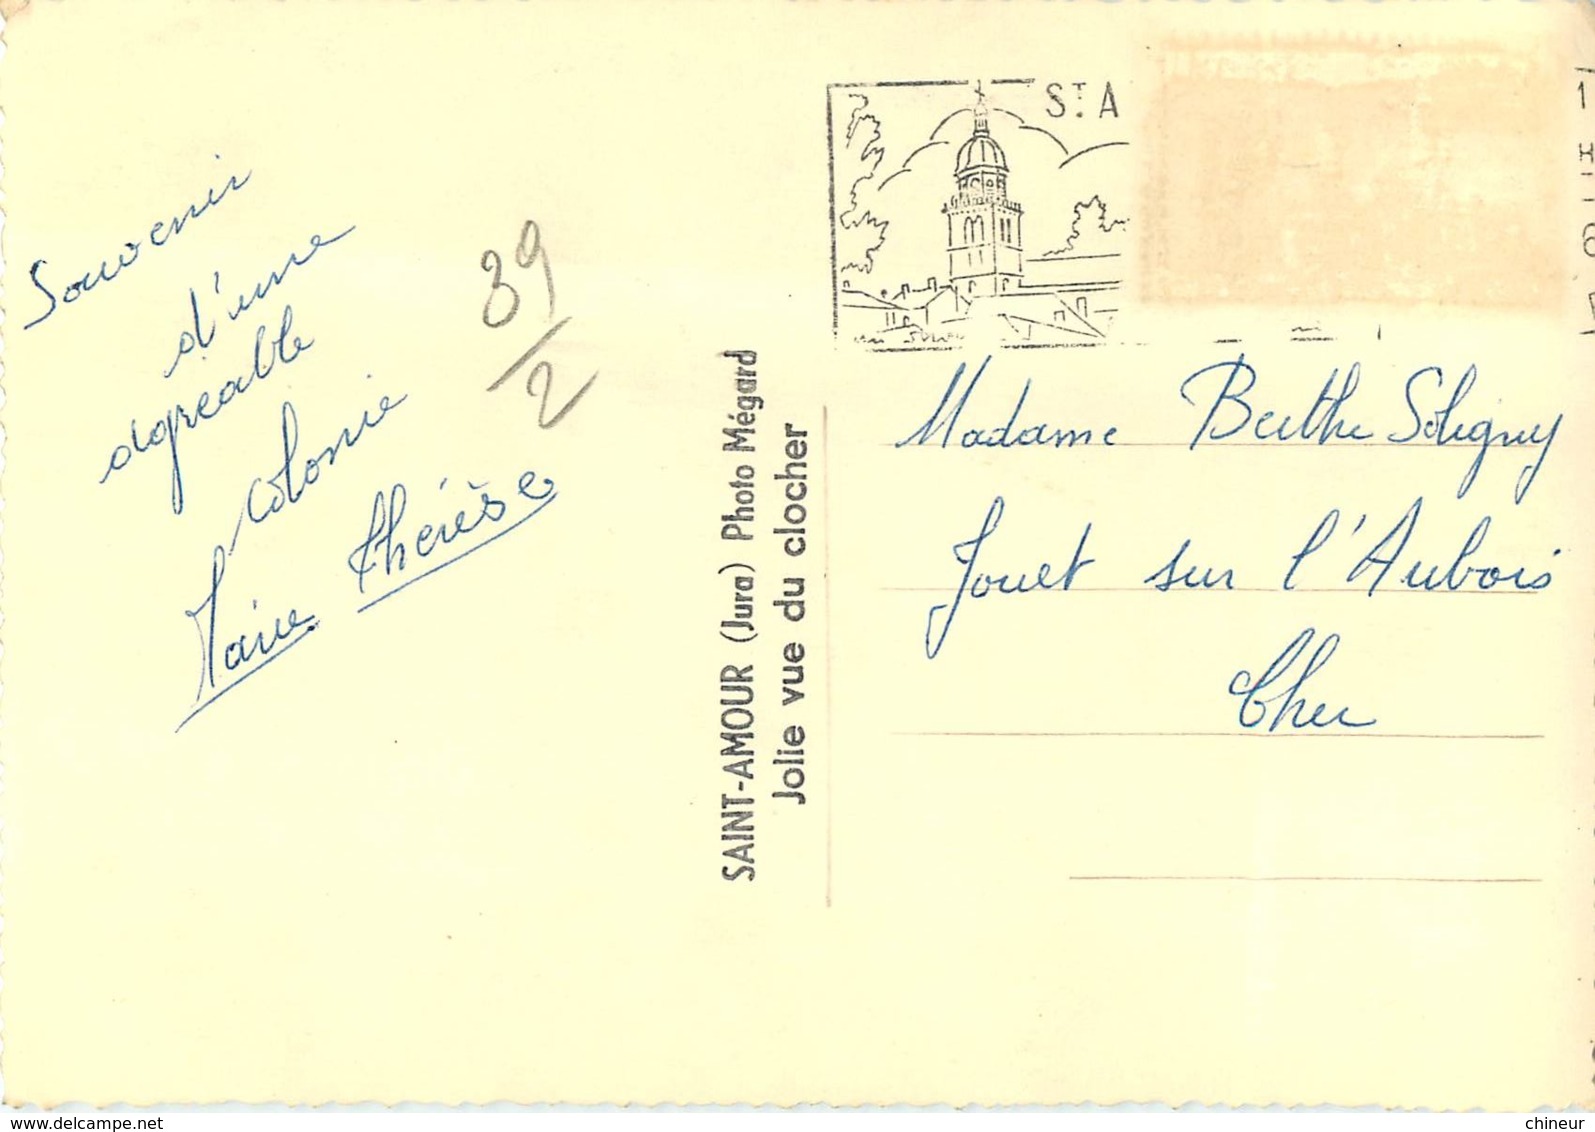 Souvenir
d'une
agréable
colonie
Marie Thérèse
39/2
SAINT-AMOUR (Jura) Photo Mégard
Jolie vue du clocher
ST. A
1
H
6
Madame Berthe Soligny
Jouet sur l'Aubois
Cher
delcampe.net
chineur